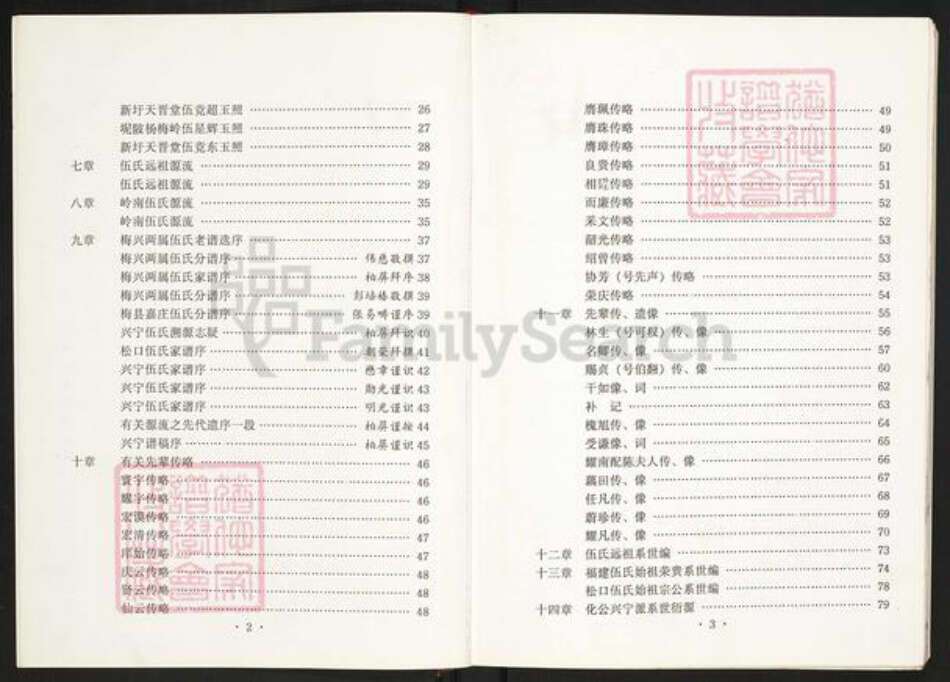 新圩天晋堂伍竞超玉照 26
呢陂杨梅岭伍星辉玉照 27
新圩天晋堂伍竞东玉照 28
七章 伍氏远祖源流 29
伍氏远祖源流 29
八章 岭南伍氏源流 35
岭南伍氏源流 35
九章 梅兴两属伍氏老谱选序 37
梅兴两属伍氏分谱序 伟慈敬撰 37
梅兴两属伍氏家谱序 柏屏拜序 38
梅兴两属伍氏分谱序 彭培椿敬撰 39
梅县嘉庄伍氏分谱序 张易畴谨序 39
兴宁伍氏溯源志疑 柏屏谨识 40
松口伍氏家谱序 朝荣拜撰 41
兴宁伍氏家谱序 懋章谨识 42
兴宁伍氏家谱序 勋光谨识 43
兴宁伍氏家谱序 明光谨识 43
有关源流之先代遗序一段 柏屏谨按 44
兴宁谱稿序 柏屏谨识 45
十章 有关先辈传略 46
寰宇传略 46
耀宇传略 46
宏谟传略 46
宏清传略 47
庠始传略 47
庆云传略 48
贤云传略 48
仙云传略 48
· 2 ·
膺珮传略 49
膺珠传略 49
膺璋传略 50
良贵传略 51
相传略 51
而廉传略 52
采文传略 52
韶光传略 53
绍曾传略 53
协芳（号先声）传略 53
荣庆传略 54
十一章 先辈传、遗像 55
林生（号可权）传、像 56
名卿传、像 57
赐贞（号伯翻）传、像 60
干如像、词 62
补 记 63
槐旭传、像 64
受谦像、词 65
耀南配陈夫人传、像 66
藕田传、像 67
任凡传、像 68
蔚珍传、像 69
耀凡传、像 70
十二章 伍氏远祖系世编 73
十三章 福建伍氏始祖荣贵系世编 74
松口伍氏始祖宗公系世编 78
十四章 化公兴宁派系世衍源 79
· 3 ·
FamilySearch